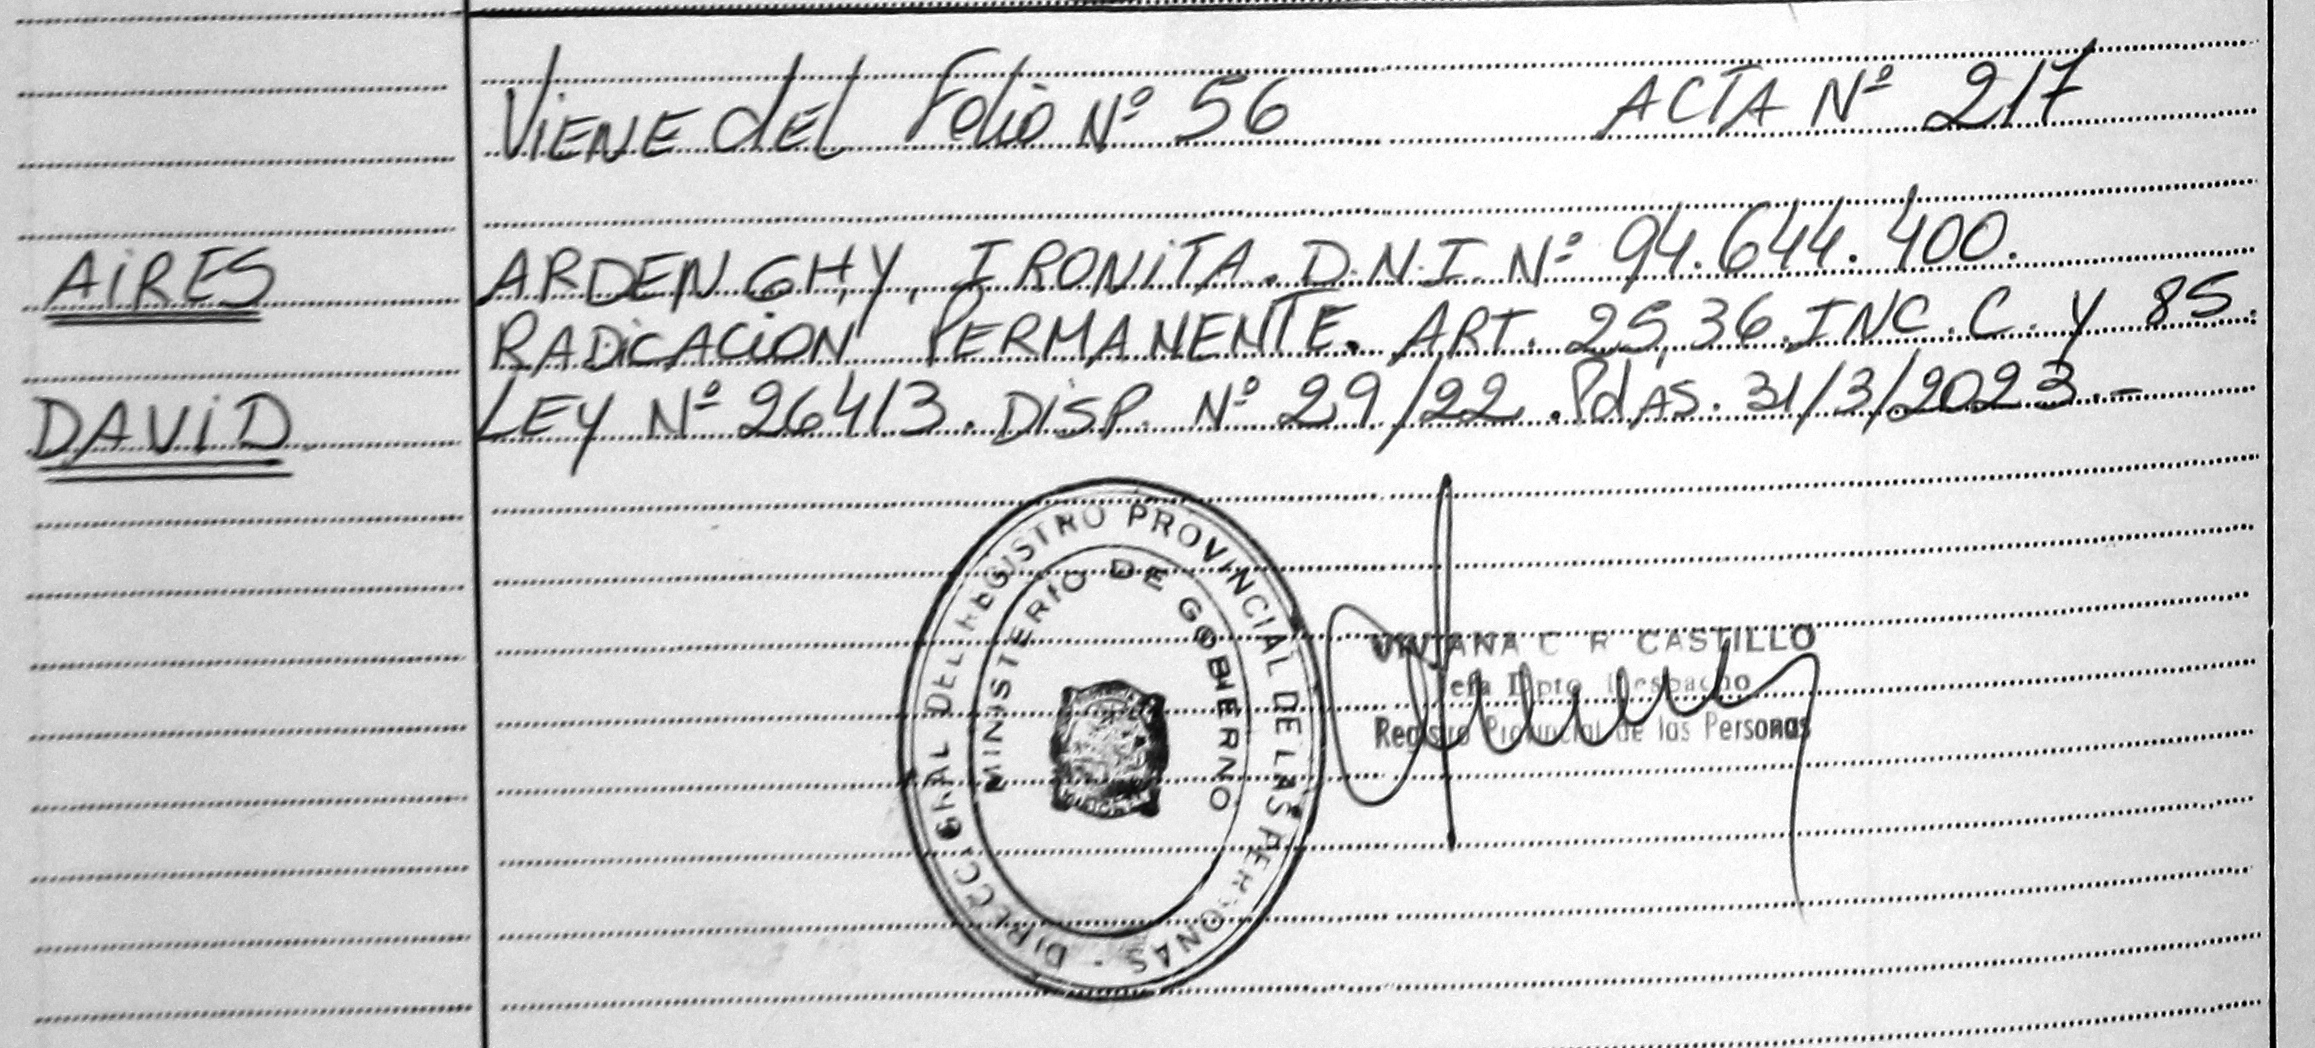 Viene del Folio Nº 56 ACTA Nº 217
AIRES
ARDENGHY, IRONITA. D.N.I. Nº 94.644.400.
RADICACION PERMANENTE. ART. 25,36.INC.C. Y 85.
DAVID
LEY Nº 26413. DISP. Nº 29/22. Pdas. 31/3/2023.-
DIRECC. GRAL DEL REGISTRO PROVINCIAL DE LAS PERSONAS -
MINISTERIO DE GOBIERNO
VIVIANA C R CASTILLO
Jefa Dpto Despacho
Registro Provincial de las Personas